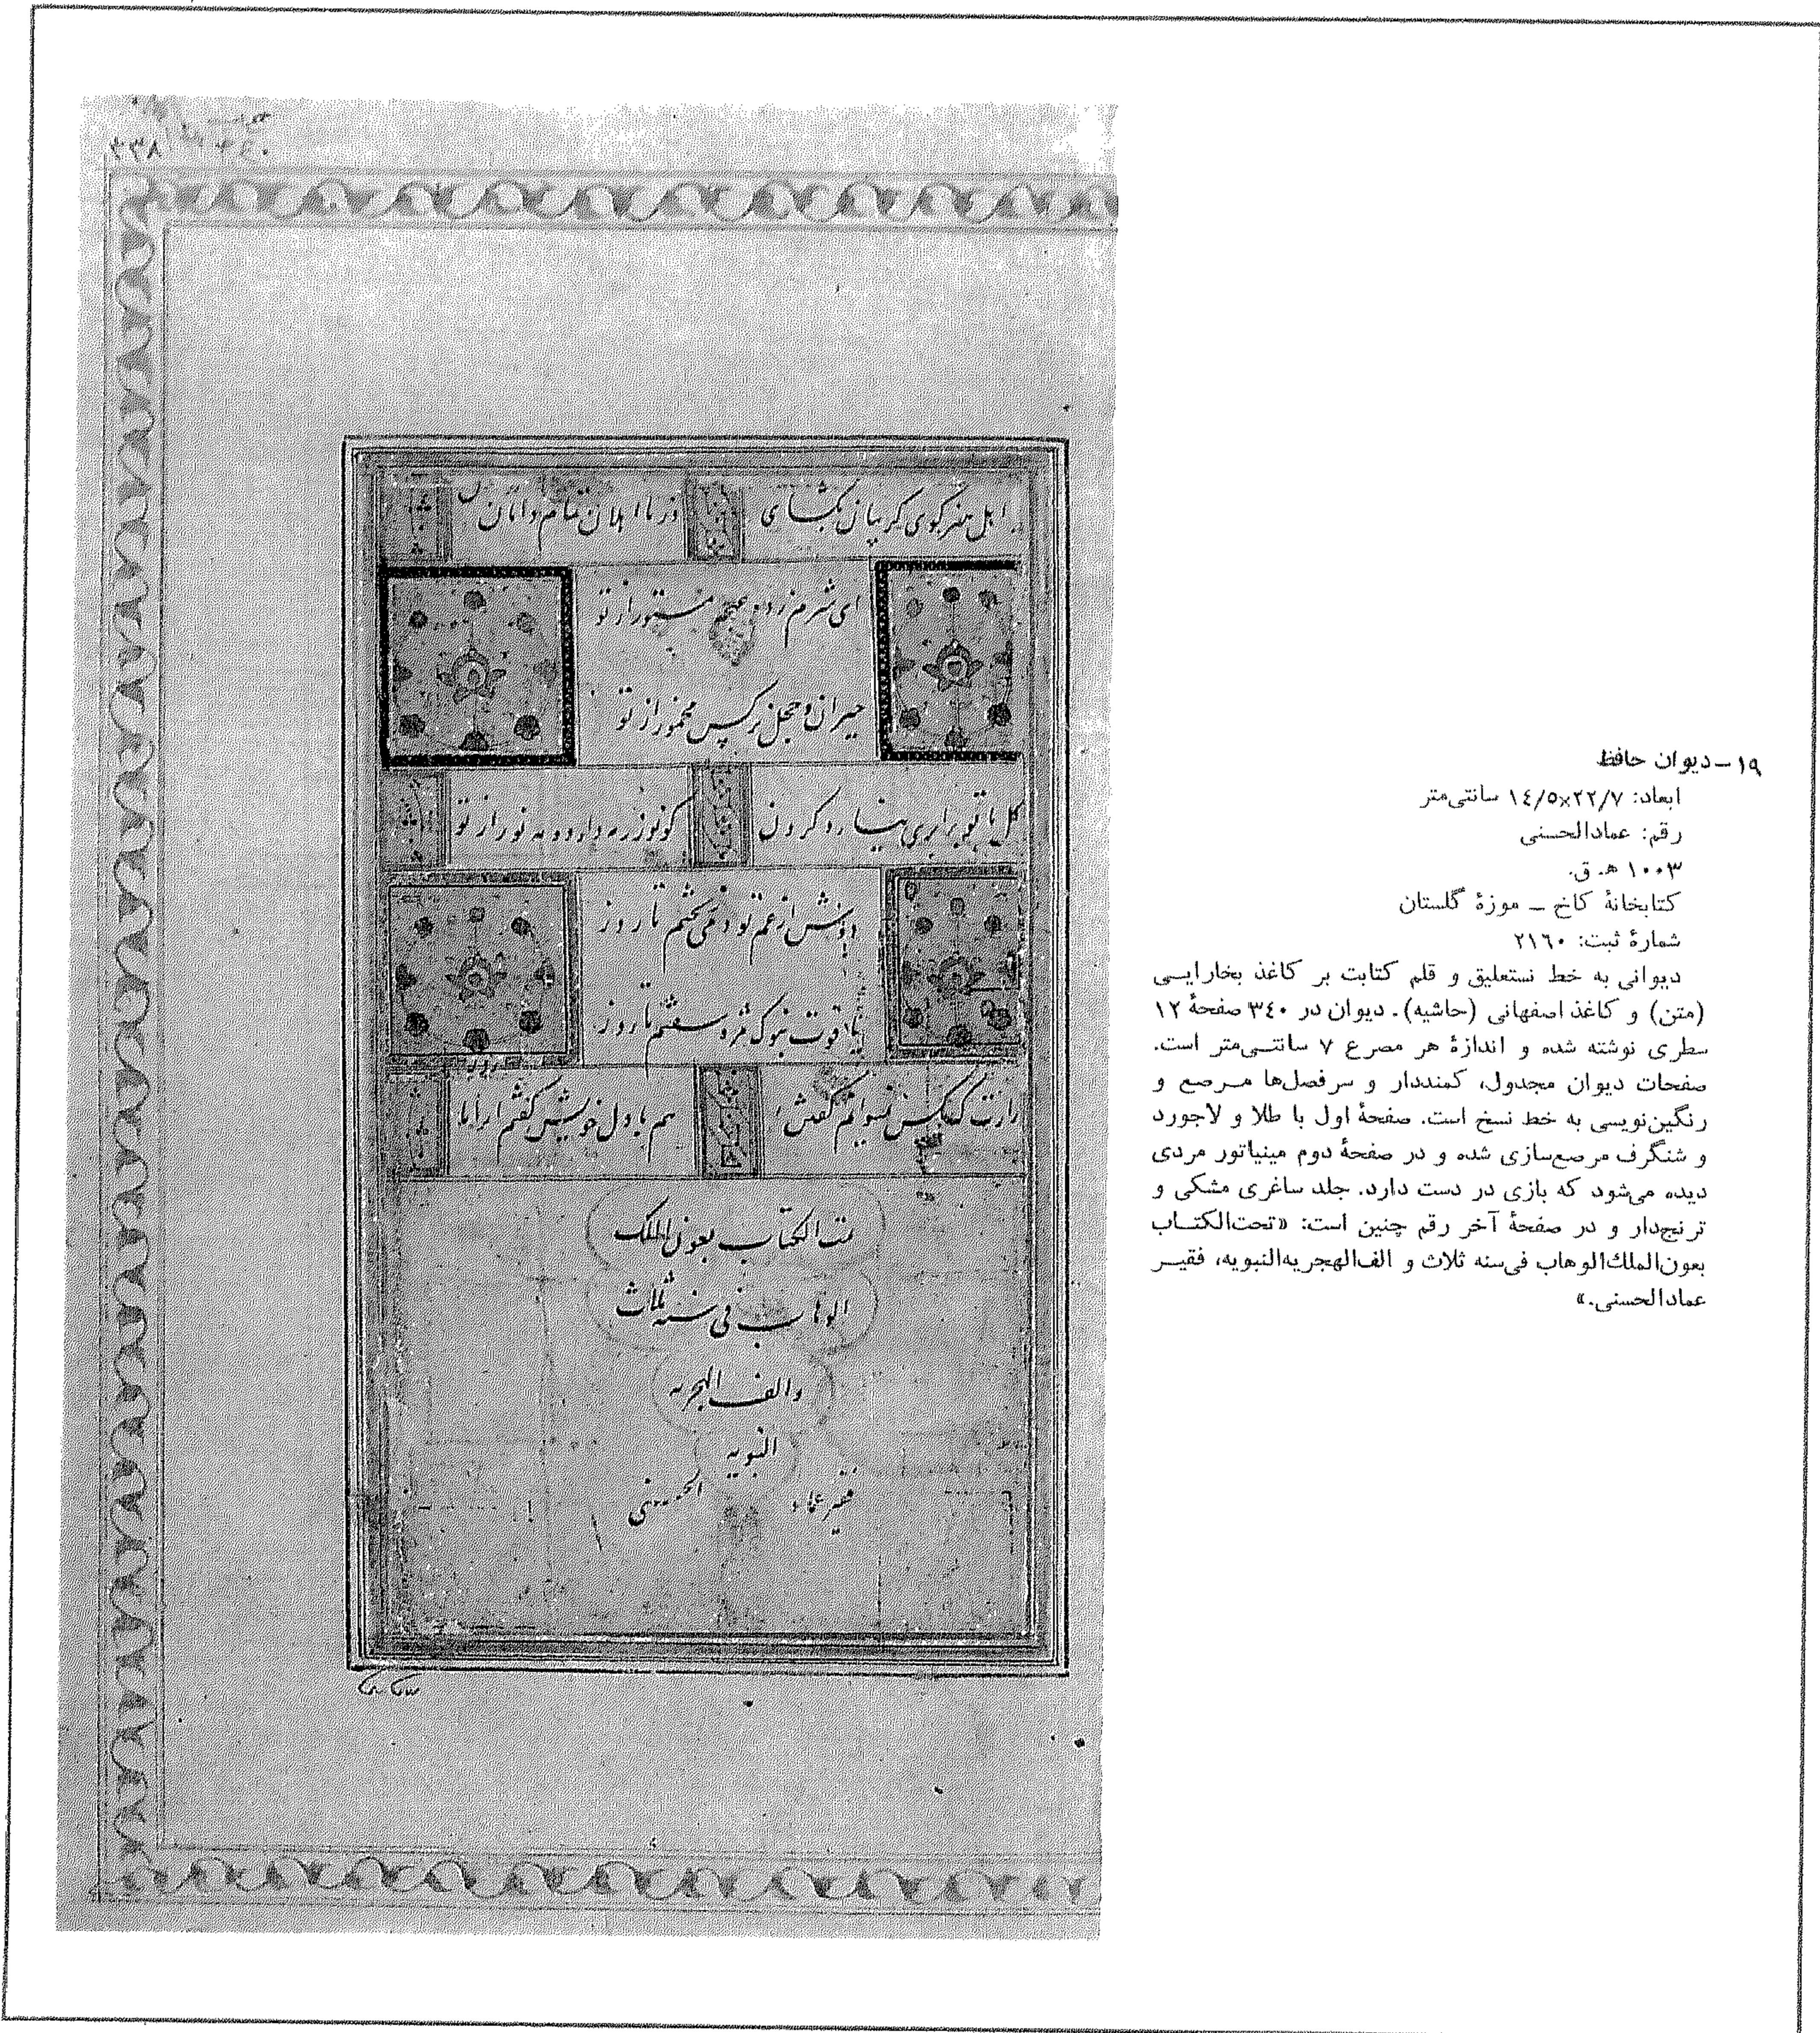 ۳۳۸
۳۴۰
اهل هنر گوی گریبان بگشای
وز نااهلان تمام دامان
ای شرم زده غنچه مستور از تو
حیران و خجل نرگس مخمور از تو
گل با تو برابری کجا یارد کردن
کو نور ز مه دارد و مه نور از تو
دوش از غمت تو دمی نخفتم تا روز
یاقوت بنوک مژه سفتم تا روز
رازت که بکس نمیتوانم گفتن
هم با دل خویش گفتم
تمت الکتاب بعون الملک
الوهاب فی سنه ثلاث
والف الهجریه
النبویه
فقیر عماد الحسنی
۱۹ـ دیوان حافظ
ابعاد: ۱۴/۵×۲۲/۷ سانتی‌متر
رقم: عمادالحسنی
۱۰۰۳ ه‍. ق.
کتابخانهٔ کاخ ـ موزهٔ گلستان
شمارهٔ ثبت: ۲۱۶۰
دیوانی به خط نستعلیق و قلم کتابت بر کاغذ بخارایی
(متن) و کاغذ اصفهانی (حاشیه). دیوان در ۳۴۰ صفحهٔ ۱۲
سطری نوشته شده و اندازهٔ هر مصرع ۷ سانتی‌متر است.
صفحات دیوان مجدول، کمنددار و سرفصل‌ها مرصع و
رنگین‌نویسی به خط نسخ است. صفحهٔ اول با طلا و لاجورد
و شنگرف مرصع‌سازی شده و در صفحهٔ دوم مینیاتور مردی
دیده می‌شود که بازی در دست دارد. جلد ساغری مشکی و
ترنج‌دار و در صفحهٔ آخر رقم چنین است: «تحت‌الکتاب
بعون‌الملك‌الوهاب فی‌سنه ثلاث و الف‌الهجریه‌النبویه، فقیر
عمادالحسنی.»